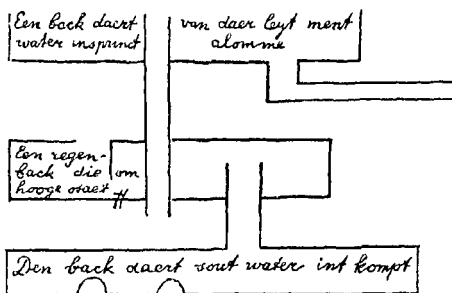 Een back daert
water inspruct
van daer leyt ment
alomme
Een regen-
back die om
hooge staet
Den back daert sout water int kompt